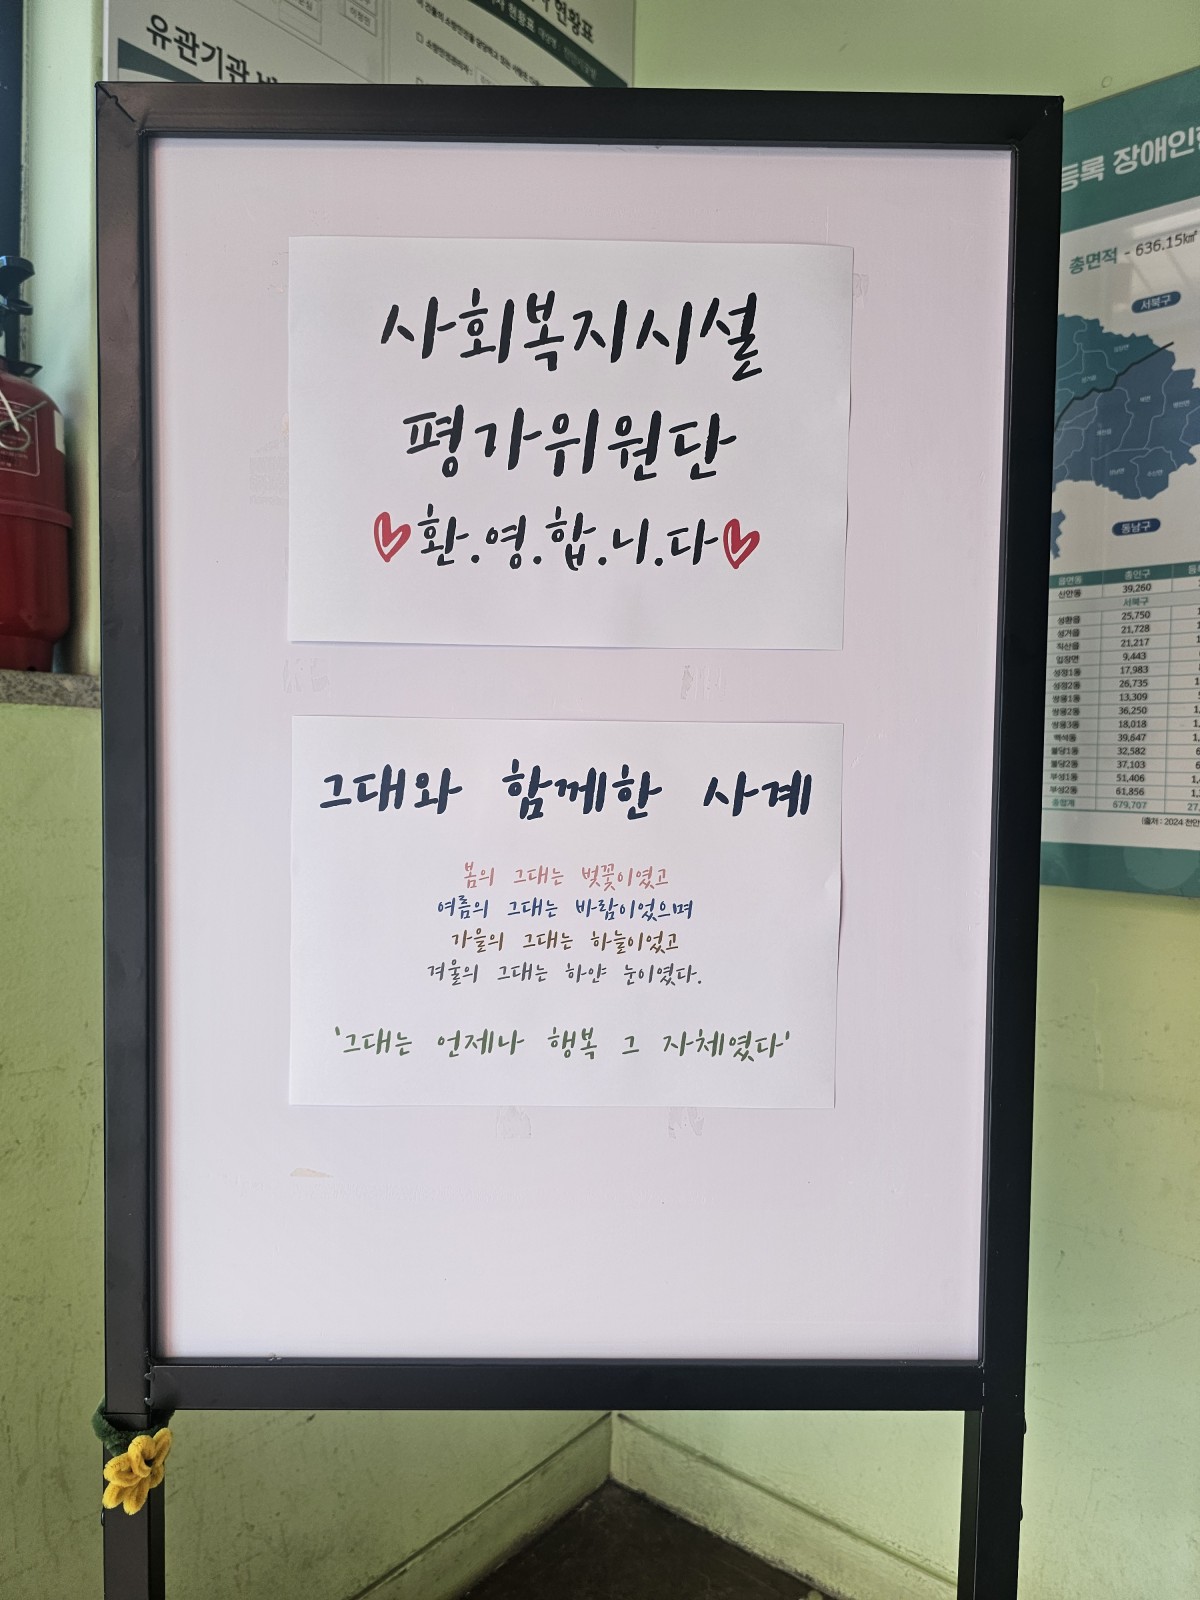 유관기관
현황표
사회복지시설
평가위원단
환.영.합.니.다
그대와 함께한 사계
봄의 그대는 벚꽃이였고
여름의 그대는 바람이었으며
가을의 그대는 하늘이었고
겨울의 그대는 하얀 눈이였다.
'그대는 언제나 행복 그 자체였다'
등록 장애인
총면적 - 636.15㎢
서북구
동남구
읍면동 총인구
신안동 39,260
서북구
성환읍 25,750
성거읍 21,728
직산읍 21,217
입장면 9,443
성정1동 17,983
성정2동 26,735
쌍용1동 13,309
쌍용2동 36,250
쌍용3동 18,018
백석동 39,647
불당1동 32,582
불당2동 37,103
부성1동 51,406
부성2동 61,856
총합계 679,707
(출처 : 2024 천안